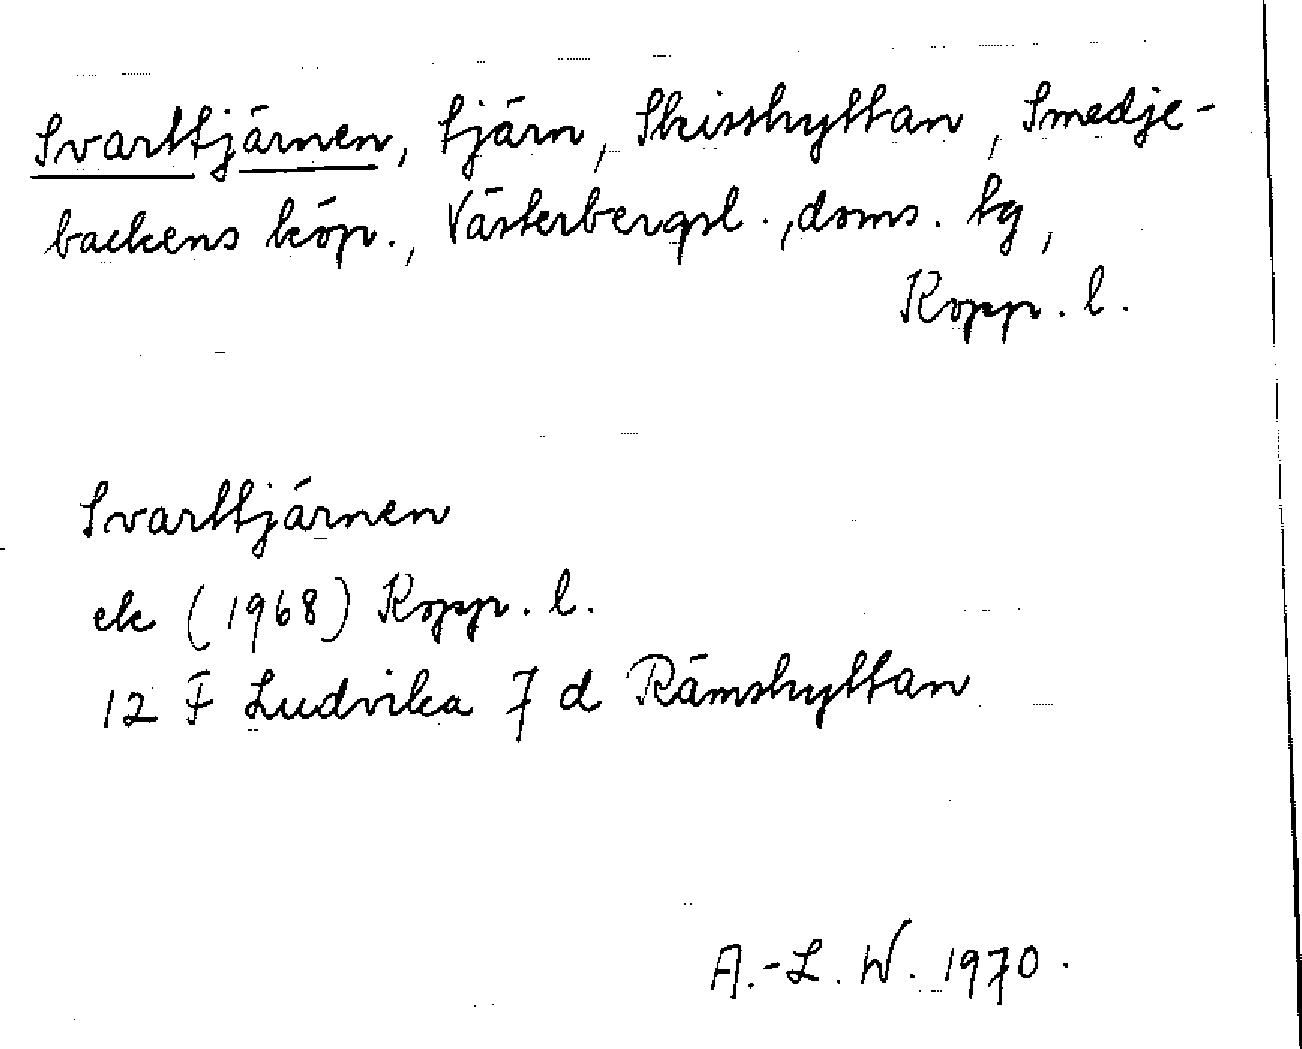 Svarttjärnen, tjärn, Skisshyttan, Smedje-
backens köp., Västerbergsl., doms. tg,
Kopp. l.
Svarttjärnen
ek (1968) Kopp. l.
12 F Ludvika 7 d Rämshyttan
A.-L. W. 1970.